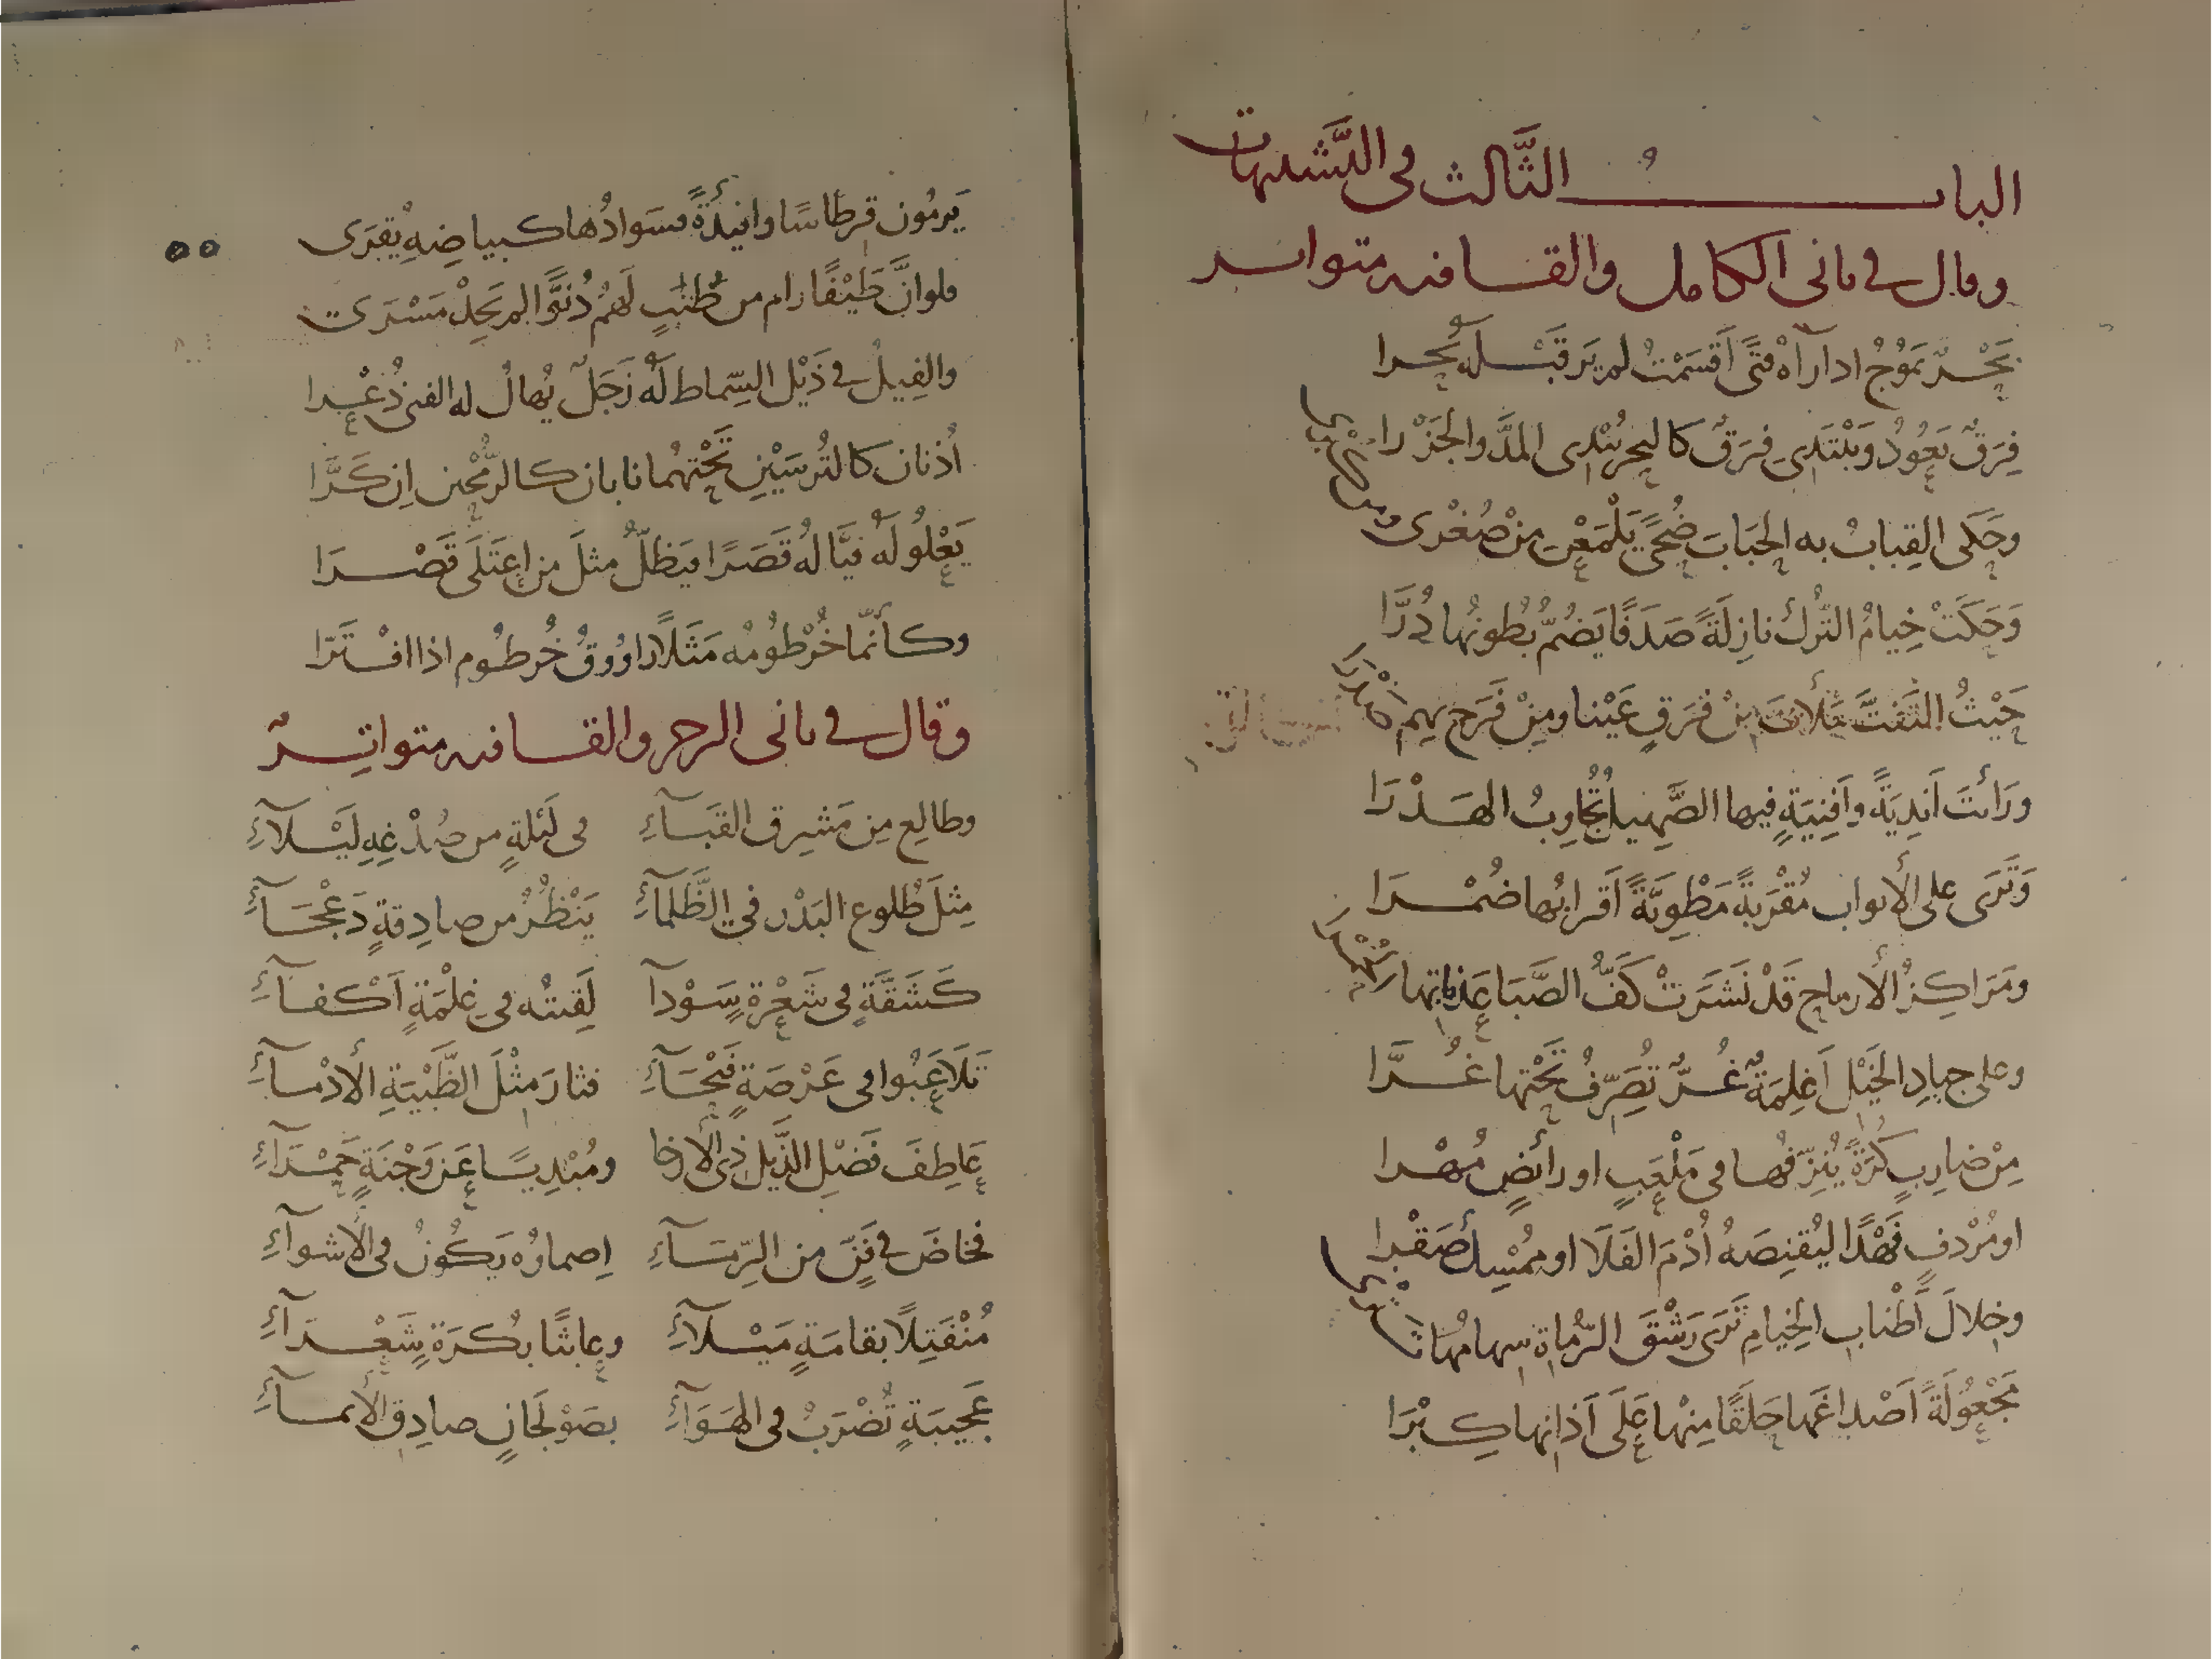 الباب الثَّالث في التَّشبيهات
وقال في ثاني الكامل والقافيه متواتر
بَحْرٌ يَمُوجُ اذا رَآهُ فَتًى أَقْسَمْتُ لم يَرَ قَبْلَهُ بَحرا
فِرَقٌ يَعُودُ وَيَبْتَدِي فِرَقٌ كالبحر يُبْدِى المَدَّ والجَزْرا
وحَكَى القِبابُ به الحَبَابَ ضُحًى يَلْمَعْنَ مِنْ صُغْرى ومن كبرى
وَحَكَتْ خِيامُ التُّرك نازِلَةً صَدَفًا يَضُمُّ بُطونُها دُرَّا
حَيْثُ التَفَتَّ مَلأْتَ مِنْ فَرَقٍ عَيْنا ومِنْ فَرَحٍ بهم صَدْرَا
ورَأَيتَ اَندِيَةً وأَفنِيَةً فيها الصَّهِيل تُجَاوِبُ الهَدْرَا
وَتَرَى على الأبواب مُقْرَبَةً مَطْوِيَّةً اَقرابُها ضُمْرَا
ومَرَاكِزُ الأرماح قَدْ نَشَرَتْ كَفُّ الصَّبَا عَذَباتِها
وعلى جيادِ الخَيْل اَغلِمَةٌ غُرٌّ تُصَرِّفُ تَحْتها غُرَّا
مِنْ ضارِبٍ كُرَةً يُنَزِّفُها في مَلْعَبٍ او رائِضٍ مُهْرا
او مُرْدفٍ فَهْدًا ليُقنِصَهُ اُدْمَ الفَلَا او مُمْسِك صَقْرا
وخِلالَ أَطْنابِ الخِيامِ تَرَى رَشْقَ الرُّماةِ سِهامُها
مَجْعُولَةً اَصْداغَها حَلَقًا مِنْها عَلَى آذانِها كِبْرَا
٥٥
يَرمُون قرطاسًا وافئِدَةً فسَوادُها كبياضِهِ يُقرَى
فلو انَّ طَيْفًا رام من طُنُبٍ لَهُمُ دُنُوًّا لم يَجِدْ مَسْرَى
والفِيلُ في ذَيْل السِّماط لَهُ زَجَلٌ يُهالُ له الفتى ذُعْرا
اُذنان كالتُرسَيْنِ تَحْتَهُما نابان كالرُّمْحَين اِن كَرَّا
يَعْلُو لَهُ فَيَّالُهُ قَصَرًا فيَظلُّ مثلَ من اعتَلَى قَصْرَا
وكأنَّما خُرْطُومُه مَثَلًا راوُوقُ خُرطُوم اذا افتَرَّا
وقال في ثاني الرجز والقافيه متواتِرٌ
وطالِعٍ مِن مَشرِق القَبَآءِ في لَيْلةٍ من صُدْغِهِ لَيْلآءِ
مِثلَ طُلوع البَدْر في الظَّلمآءِ يَنْظُرُ من صادِقةٍ دَعْجَآءِ
كَشَقَّةٍ في شَعْرةٍ سَوْدآ لَقِيتُه في غِلْمَةٍ اَكْفآءِ
تَلَاعَبُوا في عَرْصَةٍ فَيْحَآءِ فثارَ مِثْلَ الظَّبْيَةِ الأَدْمآءِ
عاطِفَ فَضْلِ الذَّيل ذى الأرخا ومُبْدِيًا عَن وَجْنَةٍ حَمْرَآءِ
فخاضَ في فَنٍّ من الرِّمَآءِ اِصماؤُه يَكُونُ في الأشوآءِ
مُنْفَتِلًا بقامَةٍ مَيْلآءِ وعابثًا بكُرَةٍ شَعْرَآءِ
عَجِيبَةٍ تُضْرَبُ في الهَوَآءِ بصَوْلَجَانٍ صادِق الأيمآءِ